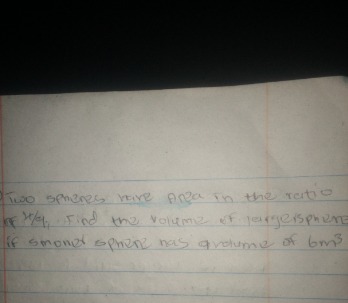 Two spheres have Area in the ratio
of Find the volume of larger sphere
if smaller sphere has a volume of 6m³